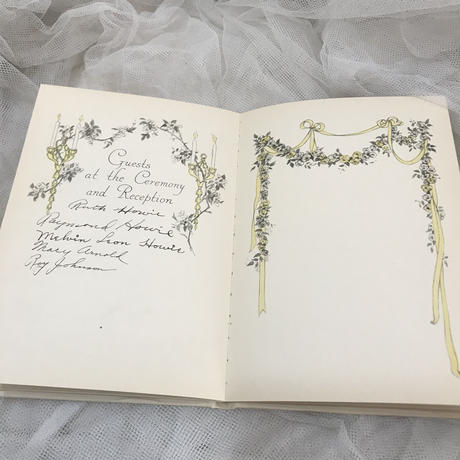 Guests
at the Ceremony
and Reception
Ruth Howie
Raymond Howie
Melvin Leon Howie
Mary Arnold
Roy Johnson